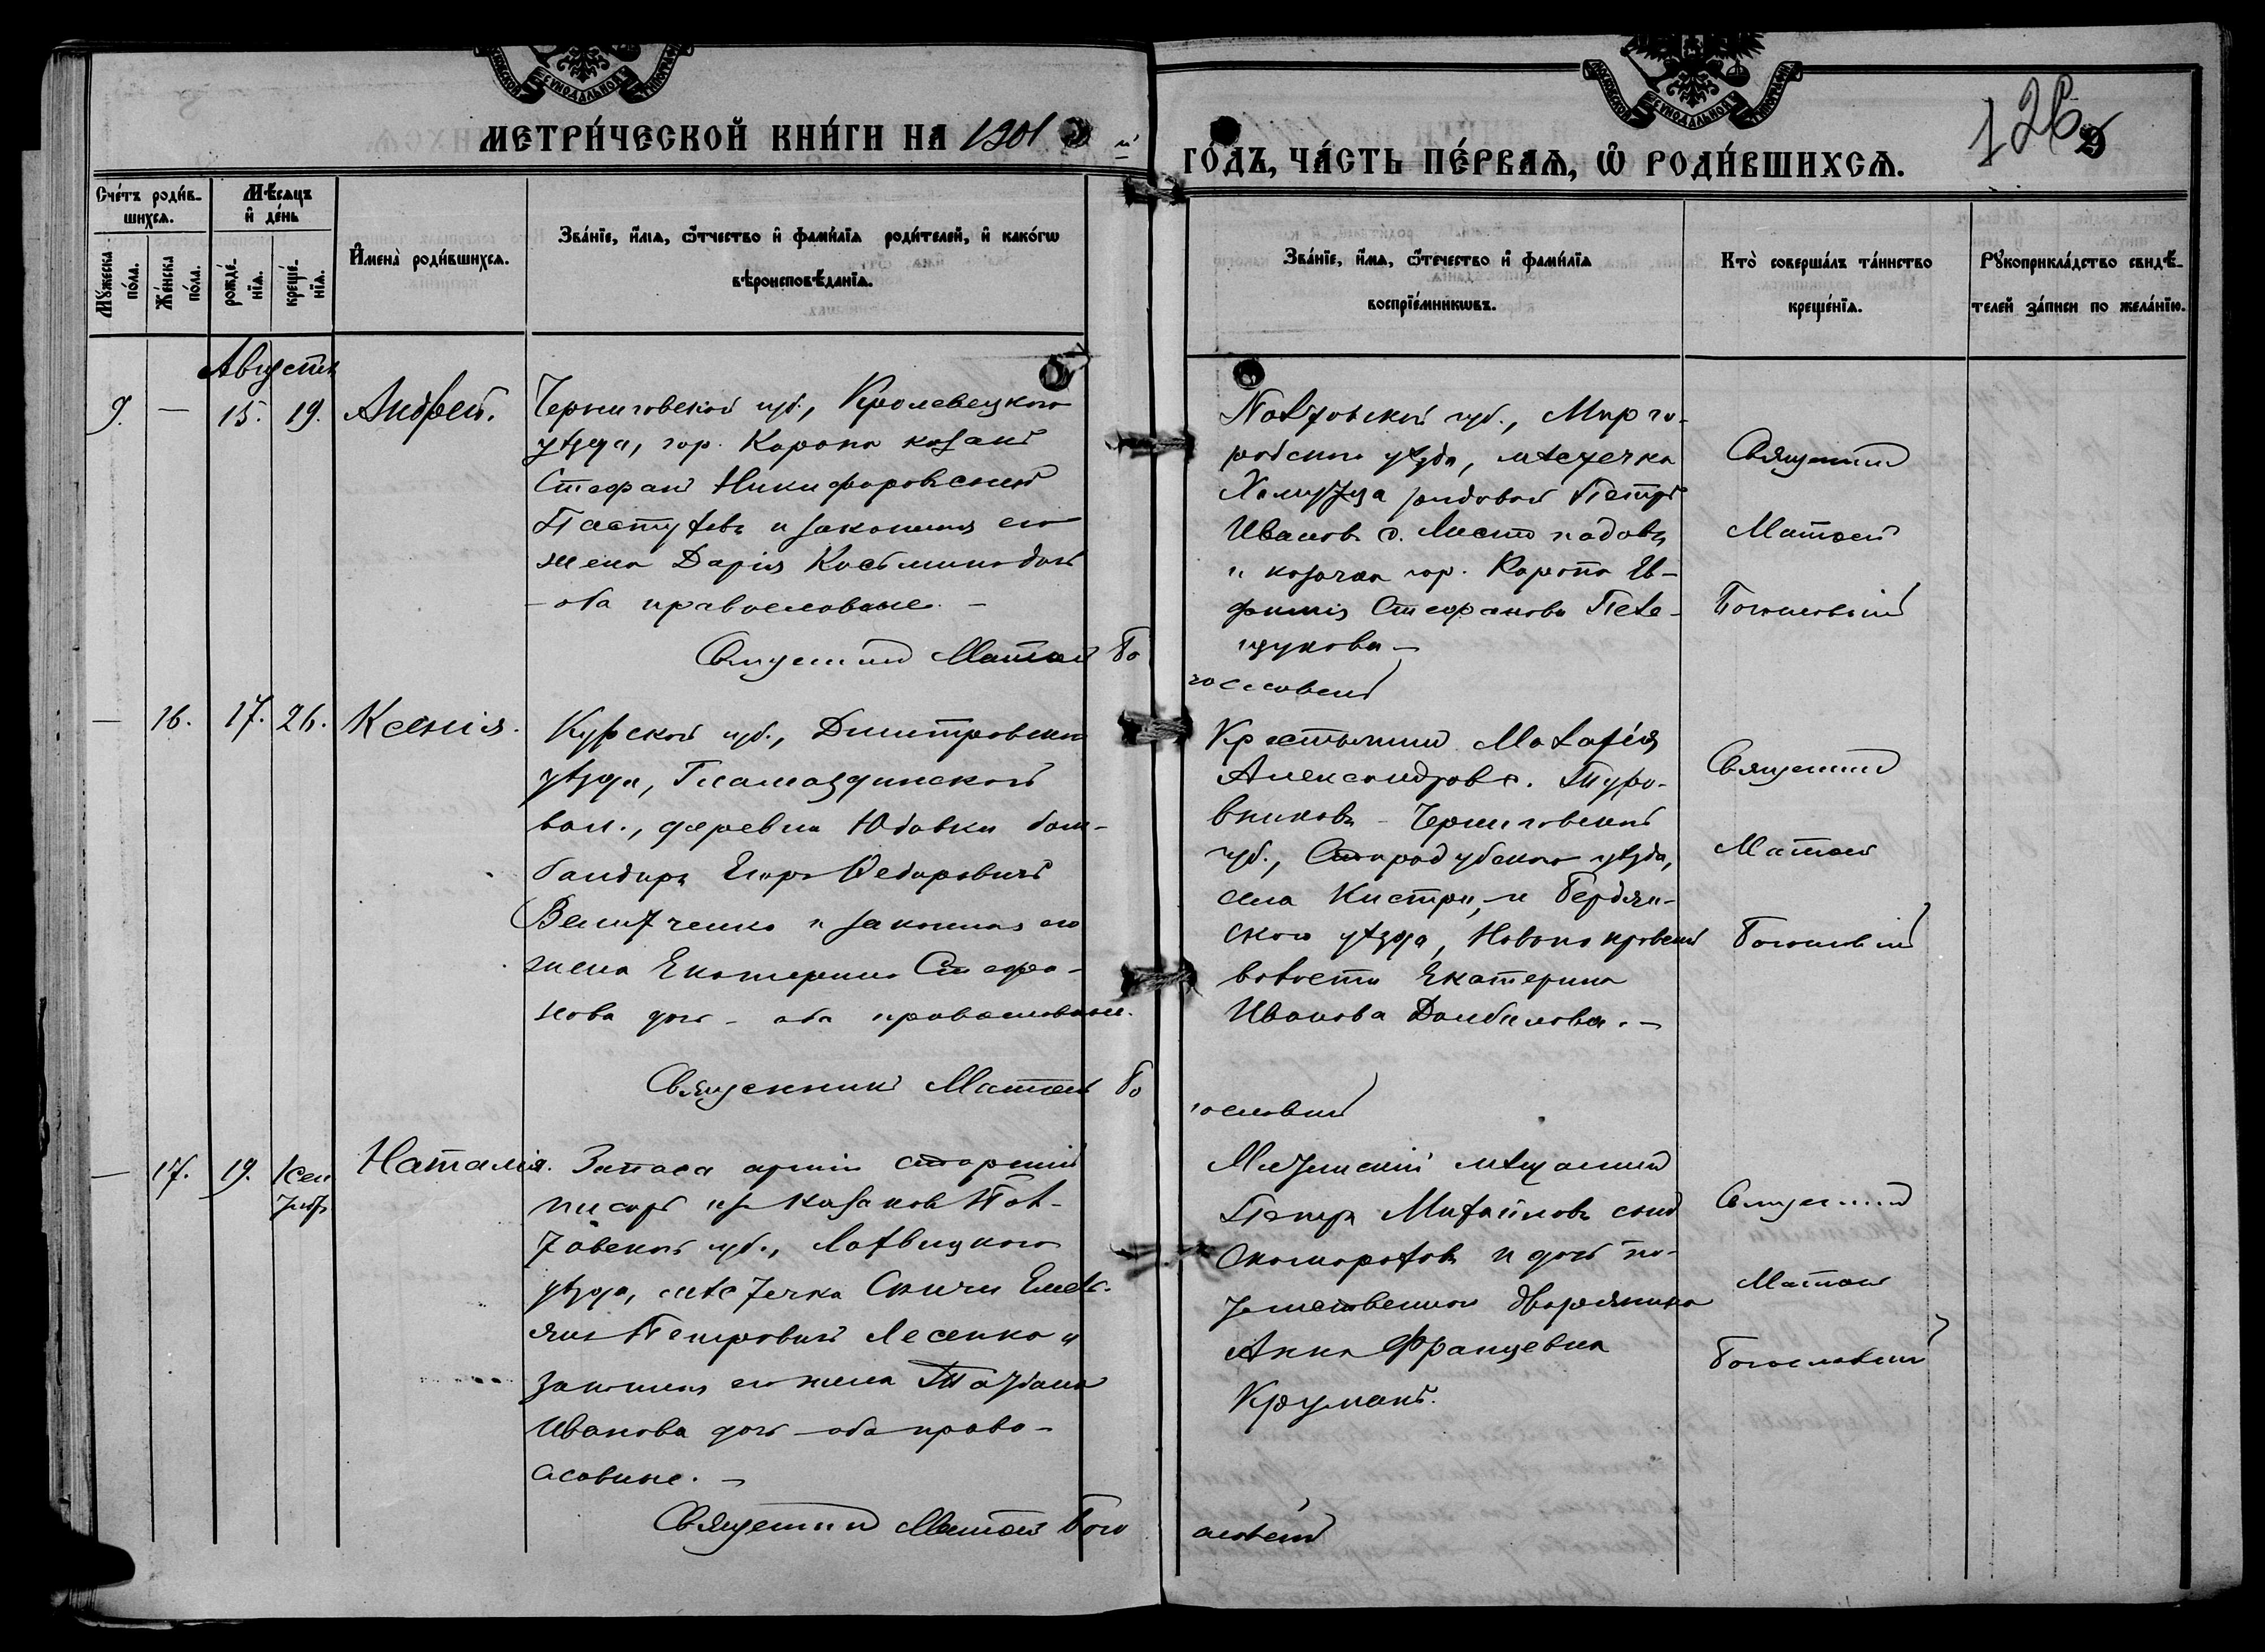 МЕТРИ́ЧЕСКОЙ КНИ́ГИ НА 1901 й
ГО́ДЪ, ЧА́СТЬ ПЕ́РВАѦ, Ѡ҆ РОДИ́ВШИХСѦ.
126
Сче́тъ роди́в-
шихсѧ.
Мꙋ́жеска
по́ла.
Же́нска
по́ла.
Мѣ́сѧцъ
и҆ де́нь
рожде́-
нїѧ.
креще́-
нїѧ.
И҆мена̀ роди́вшихсѧ.
Зва́нїе, и҆́мѧ, ѻ҆́тчество и҆ фами́лїѧ роди́телей, и҆ како́гѡ
вѣроисповѣ́данїѧ.
Зва́нїе, и҆́мѧ, ѻ҆́течество и҆ фами́лїѧ
воспрїе́мникѡвъ.
Кто̀ соверша́лъ та́инство
креще́нїѧ.
Рꙋкоприкла́дство свидѣ́-
телей за́писи по жела́нїю.
Августъ
9. — 15. 19. Андрей.
Черниговской губ., Кролевецкого
уѣзда, гор. Коропа козакъ
Стефанъ Никифоровъ
Пастуховъ и законная его
жена Дарія Косьминодочь
- оба православные. -
Священник Матѳей Бо
гословскій
Полтовской губ., Мирго-
родского уѣзда, мѣстечка
рядовой Петръ
Ивановъ с. Листопадовъ
и козачка гор. Коропа Ев-
фимія Стефанова
Священник
Матѳей
Богословскій
— 16. 17. 26. Ксенія.
Курской губ., Дмитровского
уѣзда, Гламаздинской
вол., деревни Юдовки бом-
бандиръ Егоръ Ѳедоровичъ
и законная его
жена Екатерина Стефа-
нова дочь - оба православные.
Священник Матѳей Бо
гословскій
Крестьянин
Александровъ с.
- Черниговской
губ., Стародубского уѣзда,
села Кистри, и Бердян-
ского уѣзда, Новопокровской
волости Екатерина
Иванова
Священник
Матѳей
Богословскій
— 17. 19. 1 Сен
тяб. Наталія.
Запаса арміи старшій
писарь изъ козаковъ Пол-
тавской губ., Лохвицкого
уѣзда, мѣстечка Сничи Емел.
ян Петровичъ Лесенко и
законная его жена Татіана
Иванова дочь - оба право-
славные. -
Священник Матѳей Бого
словскій
мѣщанин
Петръ Михайловъ сынъ
Скоморохов и дочь по-
томственного дворянина
Анна Францевна
Круманъ.
Священник
Матѳей
Богословскій